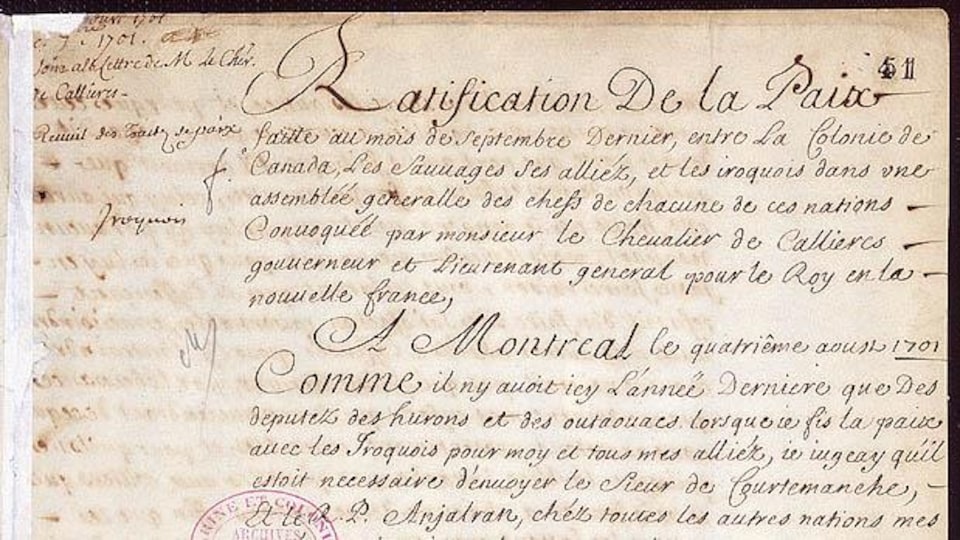 1701.
Joint a la Lettre de M. le Cher.
de Callieres -
Recueil des Traitez de paix
Iroquois
51
Ratification De la Paix
faitte au mois de septembre Dernier, entre La Colonie de
Canada, Les Sauvages ses alliéz, et les iroquois dans vne
assembléé generalle des chefs de chacune de ces nations
Convoquéé par monsieur le Chevalier de Callieres
gouverneur et Lieutenant general pour le Roy en la
nouvelle france,
A Montreal le quatriême aoust 1701
Comme il ny avoit icy L'annéé Derniere que Des
deputez des hurons et des outaouacs lorsque ie fis la paix
avec les Iroquois pour moy et tous mes alliéz, ie iugeay qu'il
estoit necessaire d'envoyer le Sieur de Courtemanche,
Et le R. P. Anjalran, chéz toutes les autres nations mes
ARINE ET COLONI
ARCHIVES